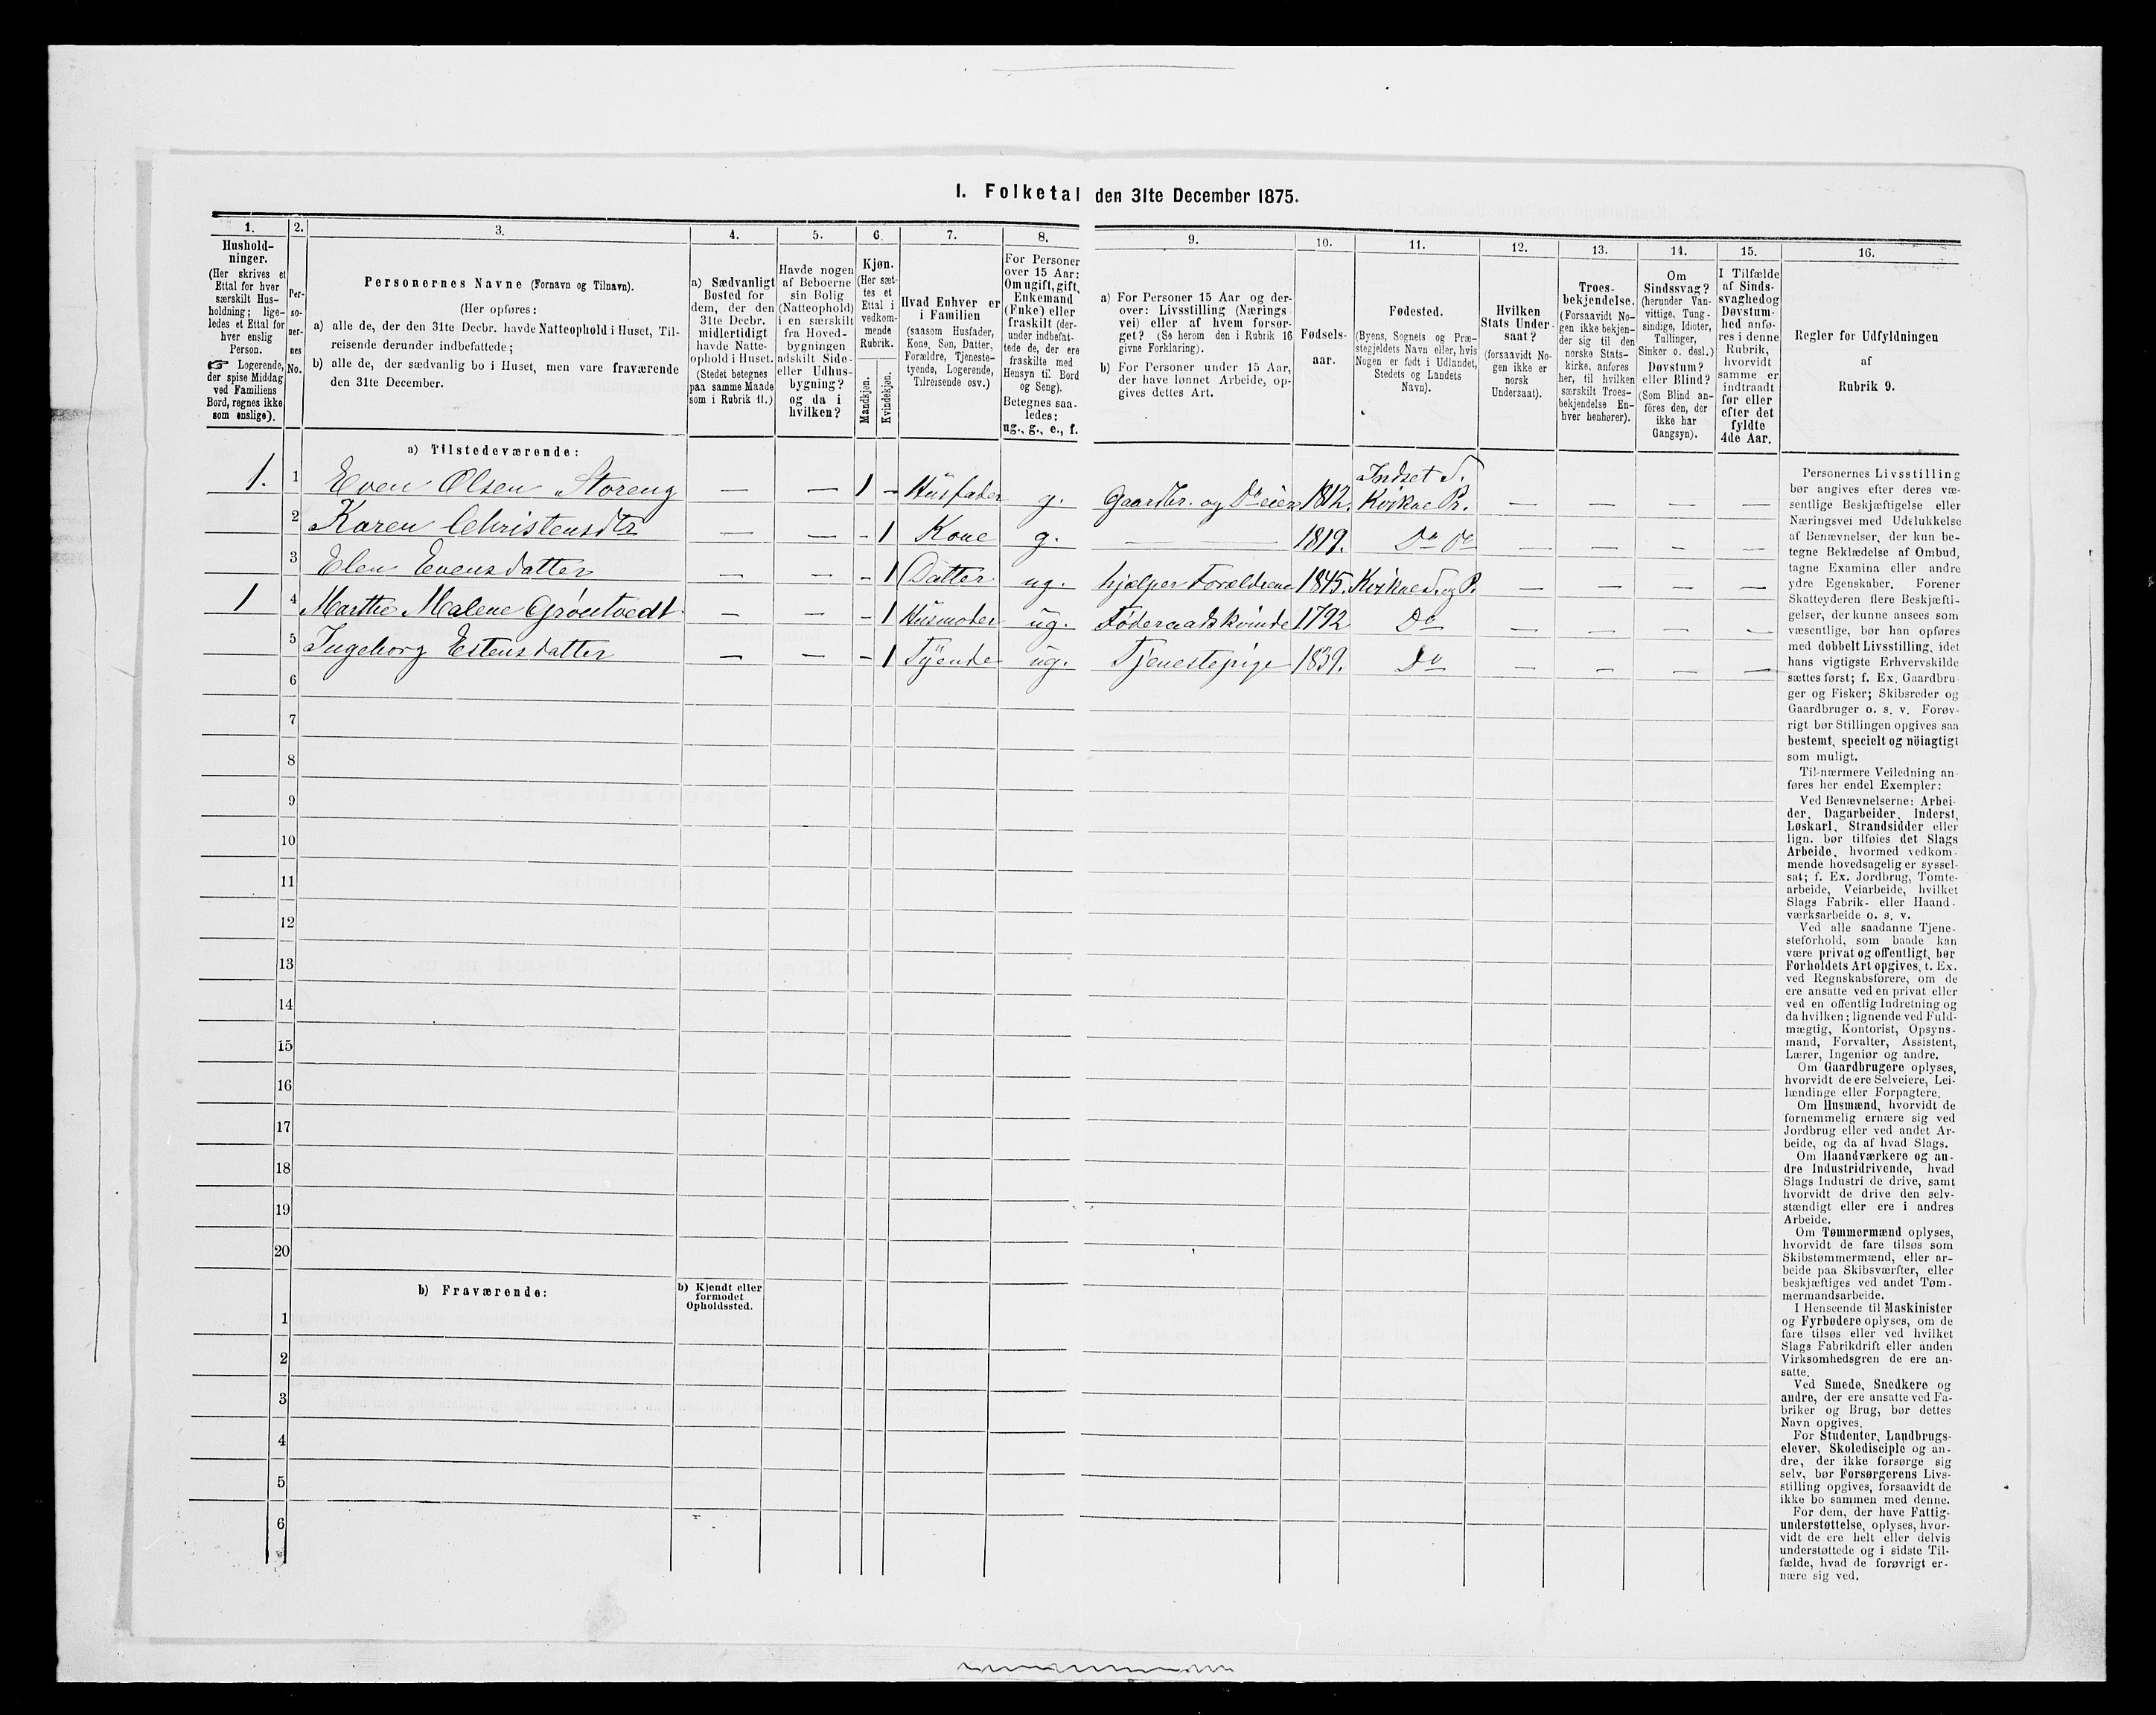 I. Folketal den 31te December 1875.
1.
Hushold-
ninger.
(Her skrives et
Ettal for hver
særskilt Hus-
holdning; lige-
ledes et Ettal for
hver enslig
Person.
☞ Logerende,
der spise Middag
ved Familiens
Bord, regnes ikke
som enslige).
2.
Per-
so-
ner-
nes
No.
3.
Personernes Navne (Fornavn og Tilnavn).
(Her opføres:
a) alle de, der den 31te Decbr. havde Natteophold i Huset, Til-
reisende derunder indbefattede;
b) alle de, der sædvanlig bo i Huset, men vare fraværende
den 31te December.
4.
a) Sædvanligt
Bosted for
dem, der den
31te Decbr.
midlertidigt
havde Natte-
ophold i Huset.
(Stedet betegnes
paa samme Maade
som i Rubrik 11.)
5.
Havde nogen
af Beboerne
sin Bolig
(Natteophold)
i en særskilt
fra Hoved-
bygningen
adskilt Side-
eller Udhus-
bygning?
og da i
hvilken?
6.
Kjøn.
(Her sæt-
tes et
Ettal i
vedkom-
mende
Rubrik.
Mandkjøn.
Kvindekjøn.
7.
Hvad Enhver er
i Familien
(saasom Husfader,
Kone, Søn, Datter,
Forældre, Tjeneste-
tyende, Logerende,
Tilreisende osv.)
8.
For Personer
over 15 Aar:
Om ugift, gift,
Enkemand
(Enke) eller
fraskilt (der-
under indbefat-
tede de, der ere
fraskilte med
Hensyn til Bord
og Seng).
Betegnes saa-
ledes:
ug., g., e., f.
9.
a) For Personer 15 Aar og der-
over: Livsstilling (Nærings
vei) eller af hvem forsør-
get? (Se herom den i Rubrik 16
givne Forklaring).
b) For Personer under 15 Aar,
der have lønnet Arbeide, op-
gives dettes Art.
10.
Fødsels-
aar.
11.
Fødested.
(Byens, Sognets og Præ-
stegjeldets Navn eller, hvis
Nogen er født i Udlandet,
Stedets og Landets
Navn).
12.
Hvilken
Stats Under-
saat?
(forsaavidt No-
gen ikke er
norsk
Undersaat).
13.
Troes-
bekjendelse.
(Forsaavidt No-
gen ikke bekjen-
der sig til den
norske Stats-
kirke, anføres
her, til hvilken
særskilt Troes-
bekjendelse En-
hver henhører).
14.
Om
Sindssvag?
(herunder Van-
vittige, Tung-
sindige, Idioter,
Tullinger,
Sinker o. desl.)
Døvstum?
eller Blind?
(Som Blind an-
føres den, der
ikke har
Gangsyn).
15.
I Tilfælde
af Sinds-
svaghed og
Døvstum-
hed anfø-
res i denne
Rubrik,
hvorvidt
samme er
indtraadt
før eller
efter det
fyldte
4de Aar.
16.
Regler for Udfyldningen
af
Rubrik 9.
a) Tilstedeværende:
1. 1 Even Olsen Storeng — — 1 - Husfader g. Gaardbr. og Do eier 1812. Indset S. Kvikne Pr. — — — —
2 Karen Christensdtr — — - 1 Kone g. — — 1819. Do Do — — — —
3 Elen Evensdatter — — - 1 Datter ug. hjælper Forældrene 1845. Kvikne S. og P. — — — —
1 4 Marthe Malene Grøntvedt — — - 1 Husmoder ug. Føderaadskvinde 1792 Do — — — —
5 Ingeborg Estensdatter — — - 1 Tyende ug. Tjenestepige 1839. Do — — — —
6
7
8
9
10
11
12
13
14
15
16
17
18
19
20
b) Fraværende:
b) Kjendt eller
formodet
Opholdssted.
1
2
3
4
5
6
Personernes Livsstilling
bør angives efter deres væ-
sentlige Beskjæftigelse eller
Næringsvei med Udelukkelse
af Benævnelser, der kun be-
tegne Beklædelse af Ombud,
tagne Examina eller andre
ydre Egenskaber. Forener
Skatteyderen flere Beskjæfti-
gelser, der kunne ansees som
væsentlige, bør han opføres
med dobbelt Livsstilling, idet
hans vigtigste Erhvervskilde
sættes først; f. Ex. Gaardbru
ger og Fisker; Skibsreder og
Gaardbruger o. s. v. Forøv-
rigt bør Stillingen opgives saa
bestemt, specielt og nöiagtigt
som muligt.
Til nærmere Veiledning an-
føres her endel Exempler:
Ved Benævnelserne: Arbei-
der, Dagarbeider, Inderst,
Løskarl, Strandsidder eller
lign. bør tilføies det Slags
Arbeide, hvormed vedkom-
mende hovedsagelig er syssel-
sat; f. Ex. Jordbrug, Tomte-
arbeide, Veiarbeide, hvilket
Slags Fabrik- eller Haand-
værksarbeide o. s. v.
Ved alle saadanne Tjene-
steforhold, som baade kan
være privat og offentligt, bør
Forholdets Art opgives, t. Ex.
ved Regnskabsførere, om de
ere ansatte ved en privat eller
ved en offentlig Indretning og
da hvilken; lignende ved Fuld-
mægtig, Kontorist, Opsyns-
mand, Forvalter, Assistent,
Lærer, Ingeniør og andre.
Om Gaardbrugere oplyses,
hvorvidt de ere Selveiere, Lei-
lændinge eller Forpagtere.
Om Husmænd, hvorvidt de
fornemmelig ernære sig ved
Jordbrug eller ved andet Ar-
beide, og da af hvad Slags.
Om Haandværkere og an-
dre Industridrivende, hvad
Slags Industri de drive, samt
hvorvidt de drive den selv-
stændigt eller ere i andres
Arbeide.
Om Tømmermænd oplyses,
hvorvidt de fare tilsøs som
Skibstømmermænd, eller ar-
beide paa Skibsværfter, eller
beskjæftiges ved andet Tøm-
mermandsarbeide.
I Henseende til Maskinister
og Fyrbødere oplyses, om de
fare tilsøs eller ved hvilket
Slags Fabrikdrift eller anden
Virksomhedsgren de ere an-
satte.
Ved Smede, Snedkere og
andre, der ere ansatte ved Fa-
briker og Brug, bør dettes
Navn opgives.
For Studenter, Landbrugs-
elever, Skoledisciple og an-
dre, der ikke forsørge sig
selv, bør Forsørgerens Livs-
stilling opgives, forsaavidt de
ikke bo sammen med denne.
For dem, der have Fattig-
understøttelse, oplyses, hvor-
vidt de ere helt eller delvis
understøttede og i sidste Til-
fælde, hvad de forøvrigt er-
nære sig ved.